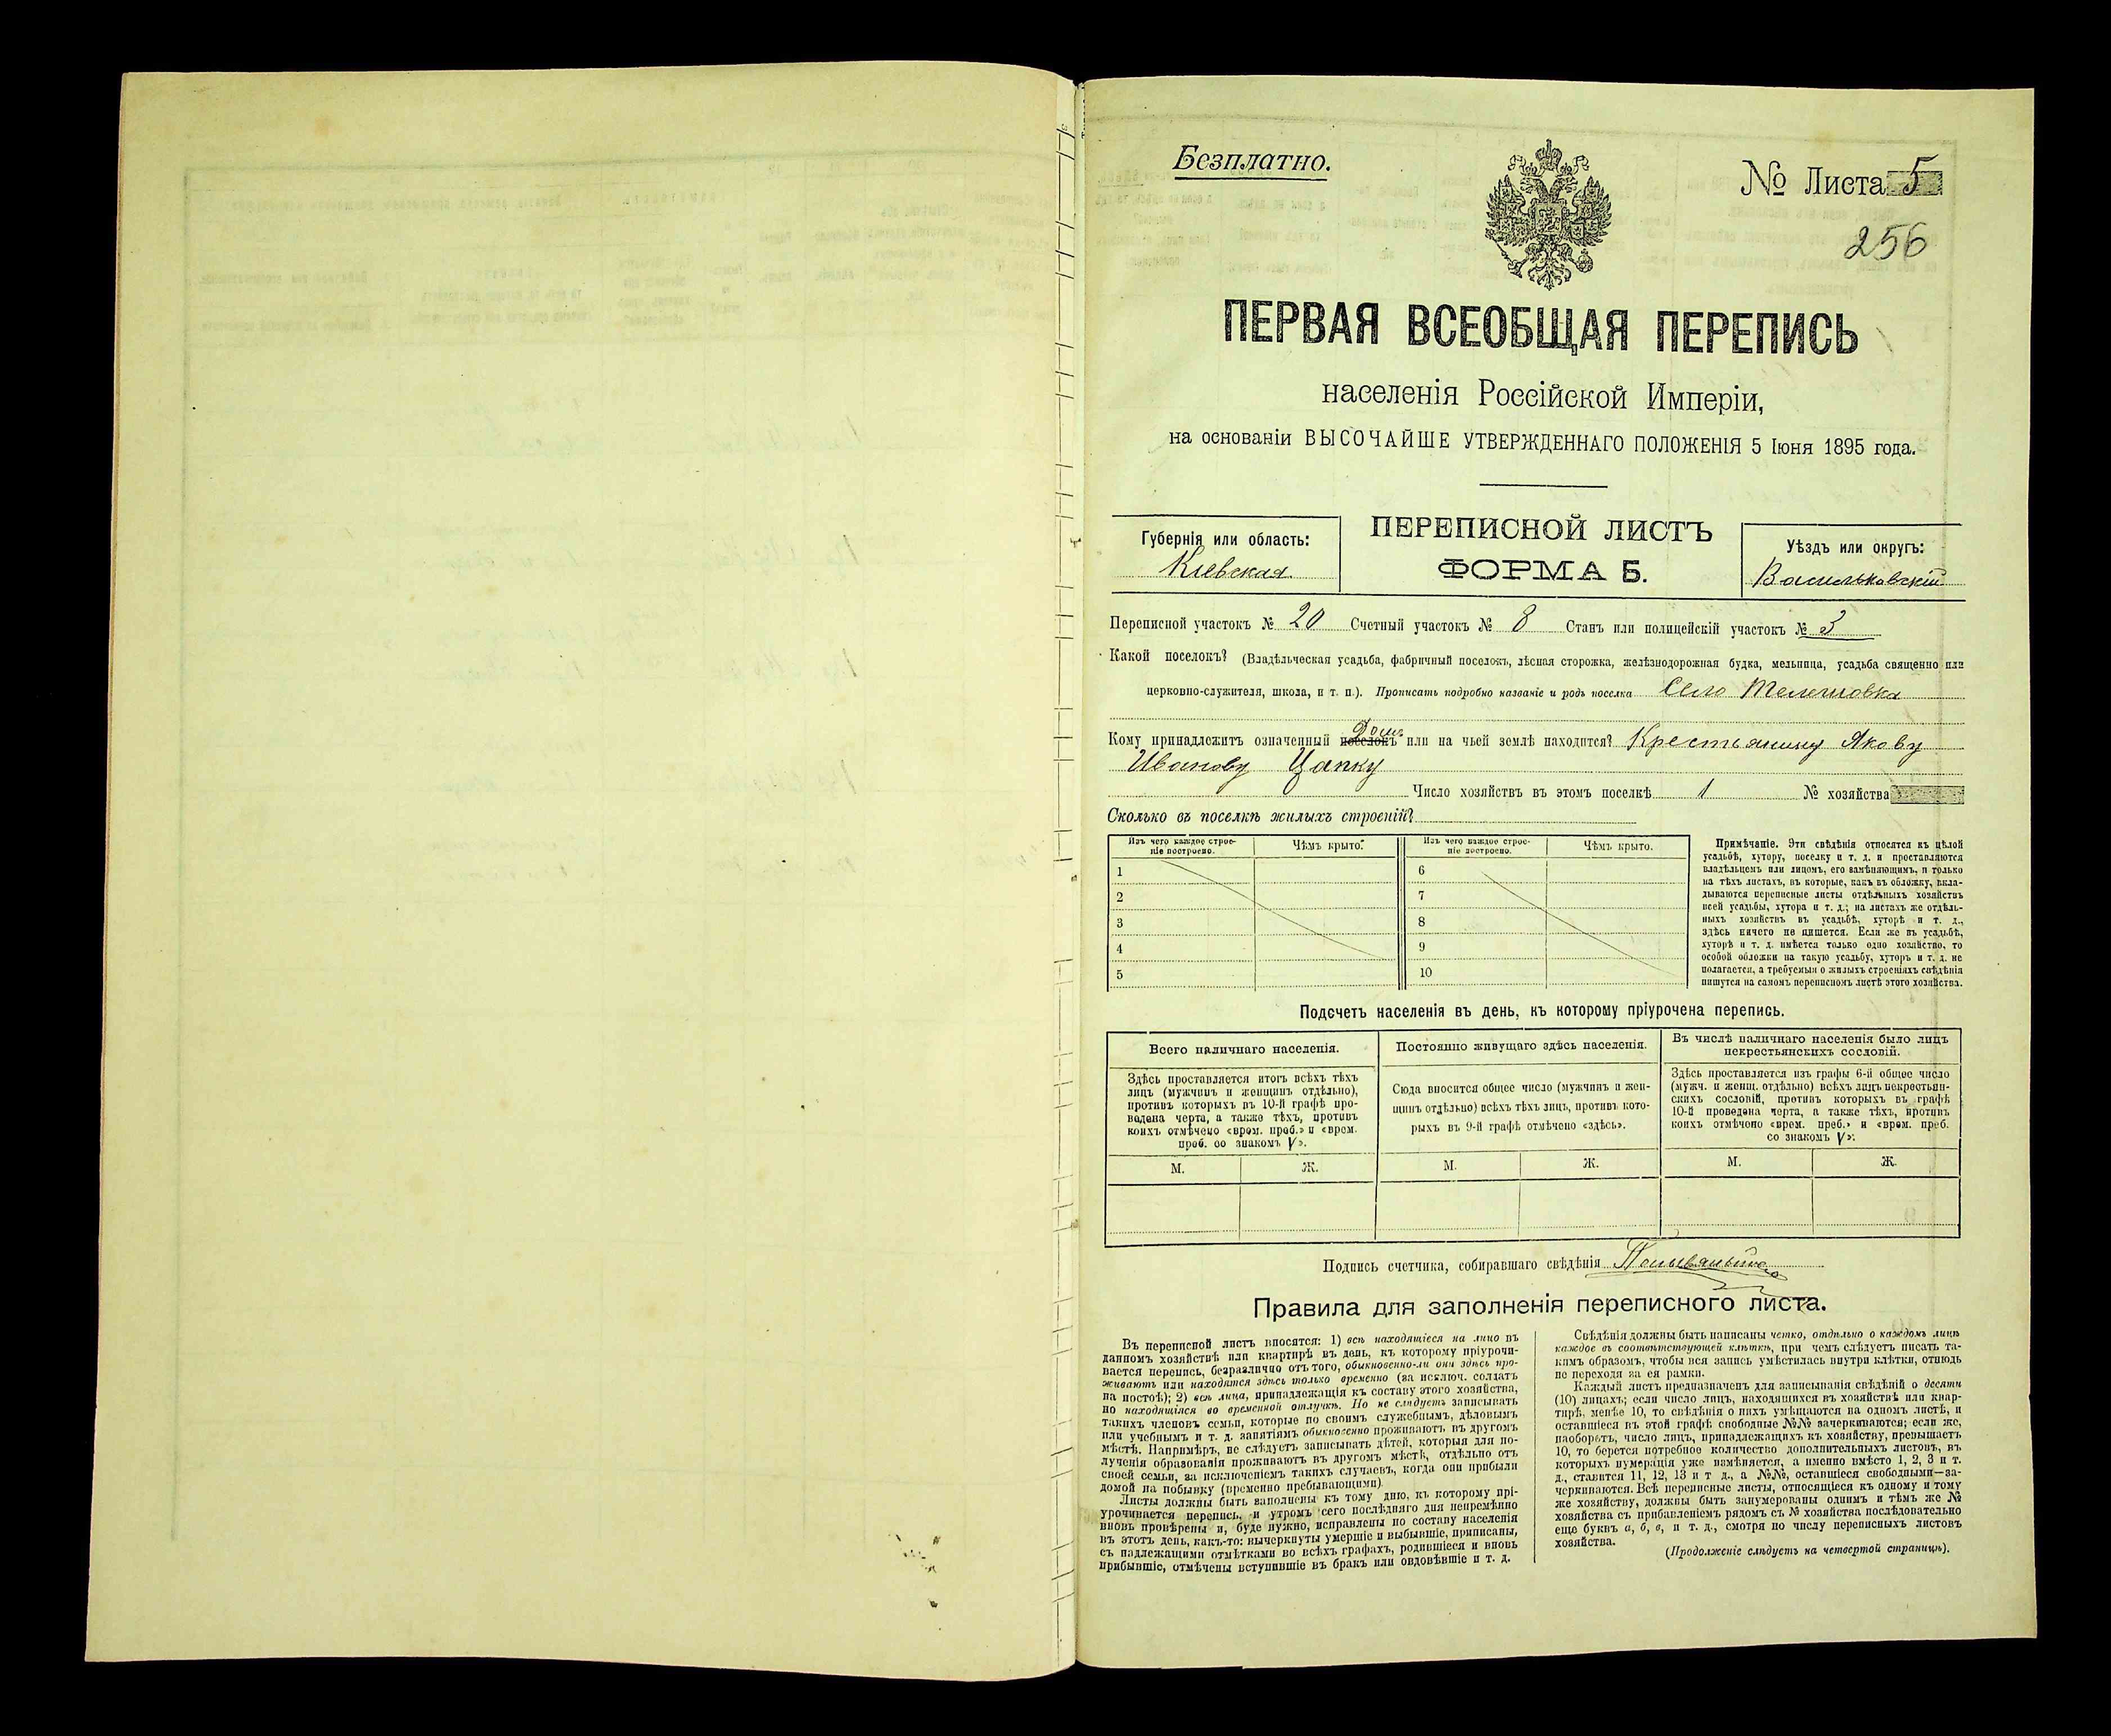 Безплатно.
№ Листа 5
256
ПЕРВАЯ ВСЕОБЩАЯ ПЕРЕПИСЬ
населенія Россійской Имперіи,
на основаніи ВЫСОЧАЙШЕ УТВЕРЖДЕННАГО ПОЛОЖЕНІЯ 5 Іюня 1895 года.
Губернія или область:
Кіевская
ПЕРЕПИСНОЙ ЛИСТЪ
ФОРМА Б.
Уѣздъ или округъ:
Васильковскій
Переписной участокъ № 20 Счетный участокъ № 8 Станъ или полицейскій участокъ № 3
Какой поселокъ? (Владѣльческая усадьба, фабричный поселокъ, лѣсная сторожка, желѣзнодорожная будка, мельница, усадьба священно или
церковно-служителя, школа, и т. п.). Прописать подробно названіе и родъ поселка Село Телешовка
Домъ
Кому принадлежитъ означенный поселокъ или на чьей землѣ находится? Крестьянину Якову
Иванову Цапку
Число хозяйствъ въ этомъ поселкѣ 1 № хозяйства
Сколько въ поселкѣ жилыхъ строеній?
Изъ чего каждое строе-
ніе построено.
Чѣмъ крыто.
Изъ чего каждое строе-
ніе построено.
Чѣмъ крыто.
1 6
2 7
3 8
4 9
5 10
Примѣчаніе. Эти свѣдѣнія относятся къ цѣлой
усадьбѣ, хутору, поселку и т. д. и проставляются
владѣльцемъ или лицомъ, его замѣняющимъ, и только
на тѣхъ листахъ, въ которые, какъ въ обложку, вкла-
дываются переписные листы отдѣльныхъ хозяйствъ
всей усадьбы, хутора и т. д.; на листахъ же отдѣль-
ныхъ хозяйствъ въ усадьбѣ, хуторѣ и т. д.,
здѣсь ничего не пишется. Если же въ усадьбѣ,
хуторѣ и т. д. имѣется только одно хозяйство, то
особой обложки на такую усадьбу, хуторъ и т. д. не
полагается, а требуемыя о жилыхъ строеніяхъ свѣдѣнія
пишутся на самомъ переписномъ листѣ этого хозяйства.
Подсчетъ населенія въ день, къ которому пріурочена перепись.
Всего наличнаго населенія.
Здѣсь проставляется итогъ всѣхъ тѣхъ
лицъ (мужчинъ и женщинъ отдѣльно),
противъ которыхъ въ 10-й графѣ про-
ведена черта, а также тѣхъ, противъ
коихъ отмѣчено «врем. преб.» и «врем.
преб. со знакомъ V».
Постоянно живущаго здѣсь населенія.
Сюда вносится общее число (мужчинъ и жен-
щинъ отдѣльно) всѣхъ тѣхъ лицъ, противъ кото-
рыхъ въ 9-й графѣ отмѣчено «здѣсь».
Въ числѣ наличнаго населенія было лицъ
некрестьянскихъ сословій.
Здѣсь проставляется изъ графы 6-й общее число
(мужч. и женщ. отдѣльно) всѣхъ лицъ некрестьян-
скихъ сословій, противъ которыхъ въ графѣ
10-й проведена черта, а также тѣхъ, противъ
коихъ отмѣчено «врем. преб.» и «врем. преб.
со знакомъ V».
М. Ж. М. Ж. М. Ж.
Подпись счетчика, собиравшаго свѣдѣнія
Правила для заполненія переписного листа.
Въ переписной листъ вносятся: 1) всѣ находящіеся на лицо въ
данномъ хозяйствѣ или квартирѣ въ день, къ которому пріурочи-
вается перепись, безразлично отъ того, обыкновенно-ли они здѣсь про-
живаютъ или находятся здѣсь только временно (за исключ. солдатъ
на постоѣ); 2) всѣ лица, принадлежащія къ составу этого хозяйства,
но находящіяся во временной отлучкѣ. Но не слѣдуетъ записывать
такихъ членовъ семьи, которые по своимъ служебнымъ, дѣловымъ
или учебнымъ и т. д. занятіямъ обыкновенно проживаютъ въ другомъ
мѣстѣ. Напримѣръ, не слѣдуетъ записывать дѣтей, которыя для по-
лученія образованія проживаютъ въ другомъ мѣстѣ, отдѣльно отъ
своей семьи, за исключеніемъ такихъ случаевъ, когда они прибыли
домой на побывку (временно пребывающими).
Листы должны быть заполнены къ тому дню, къ которому прі-
урочивается перепись, и утромъ сего послѣдняго дня непремѣнно
вновь провѣрены и, буде нужно, исправлены по составу населенія
въ этотъ день, какъ-то: вычеркнуты умершіе и выбывшіе, приписаны,
съ надлежащими отмѣтками во всѣхъ графахъ, родившіеся и вновь
прибывшіе, отмѣчены вступившіе въ бракъ или овдовѣвшіе и т. д.
Свѣдѣнія должны быть написаны четко, отдѣльно о каждомъ лицѣ
каждое въ соотвѣтствующей клѣткѣ, при чемъ слѣдуетъ писать та-
кимъ образомъ, чтобы вся запись умѣстилась внутри клѣтки, отнюдь
не переходя за ея рамки.
Каждый листъ предназначенъ для записыванія свѣдѣній о десяти
(10) лицахъ; если число лицъ, находящихся въ хозяйствѣ или квар-
тирѣ, менѣе 10, то свѣдѣнія о нихъ умѣщаются на одномъ листѣ, и
оставшіеся въ этой графѣ свободные №№ зачеркиваются; если же,
наоборотъ, число лицъ, принадлежащихъ къ хозяйству, превышаетъ
10, то берется потребное количество дополнительныхъ листовъ, въ
которыхъ нумерація уже измѣняется, а именно вмѣсто 1, 2, 3 и т.
д., ставится 11, 12, 13 и т д., а №№, оставшіеся свободными—за-
черкиваются. Всѣ переписные листы, относящіеся къ одному и тому
же хозяйству, должны быть занумерованы однимъ и тѣмъ же №
хозяйства съ прибавленіемъ рядомъ съ № хозяйства послѣдовательно
еще буквъ а, б, в, и т. д., смотря по числу переписныхъ листовъ
хозяйства.
(Продолженіе слѣдуетъ на четвертой страницѣ).